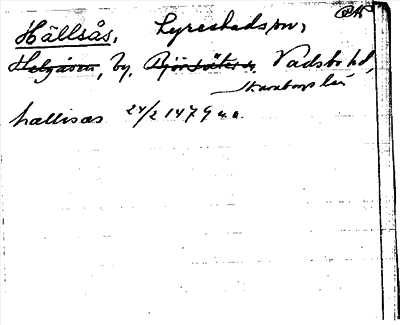 Hällsås, Lyrestads sn,
Helgåsen, by, Björsäters sn Vadsbo hd,
Skaraborgs län
hællisæs 24/2 1479 u.a.